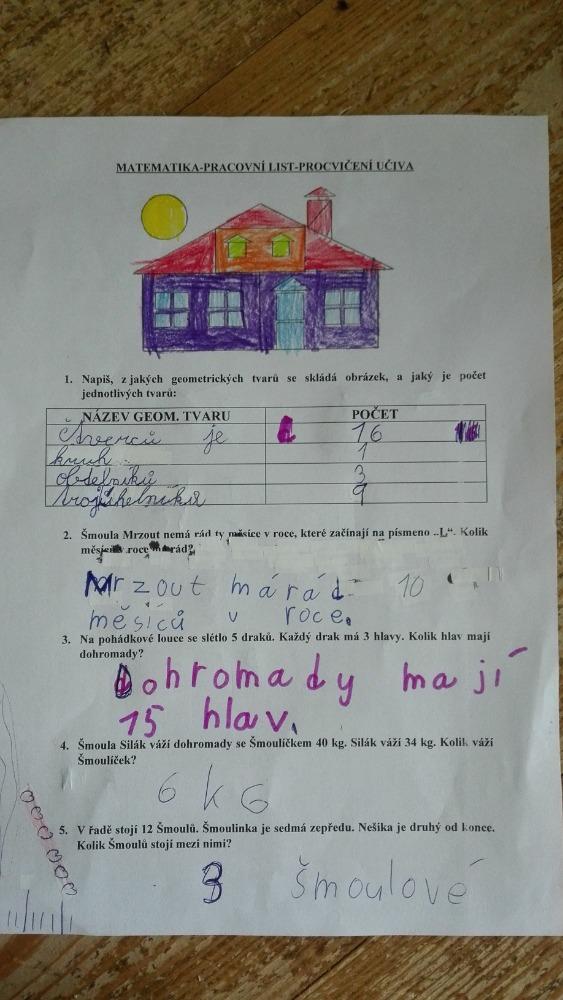 MATEMATIKA-PRACOVNÍ LIST-PROCVIČENÍ UČIVA
1. Napiš, z jakých geometrických tvarů se skládá obrázek, a jaký je počet
jednotlivých tvarů:
NÁZEV GEOM. TVARU POČET
Čtverců je 16
kruh 1
obdelníků 3
trojúhelníků 9
2. Šmoula Mrzout nemá rád ty měsíce v roce, které začínají na písmeno „L“. Kolik
měsíců v roce má rád?
Mrzout má rád 10
měsíců v roce.
3. Na pohádkové louce se slétlo 5 draků. Každý drak má 3 hlavy. Kolik hlav mají
dohromady?
Dohromady mají
15 hlav.
4. Šmoula Silák váží dohromady se Šmoulíčkem 40 kg. Silák váží 34 kg. Kolik váží
Šmoulíček?
6 kG
5. V řadě stojí 12 Šmoulů. Šmoulinka je sedmá zepředu. Nešika je druhý od konce.
Kolik Šmoulů stojí mezi nimi?
3 šmoulové